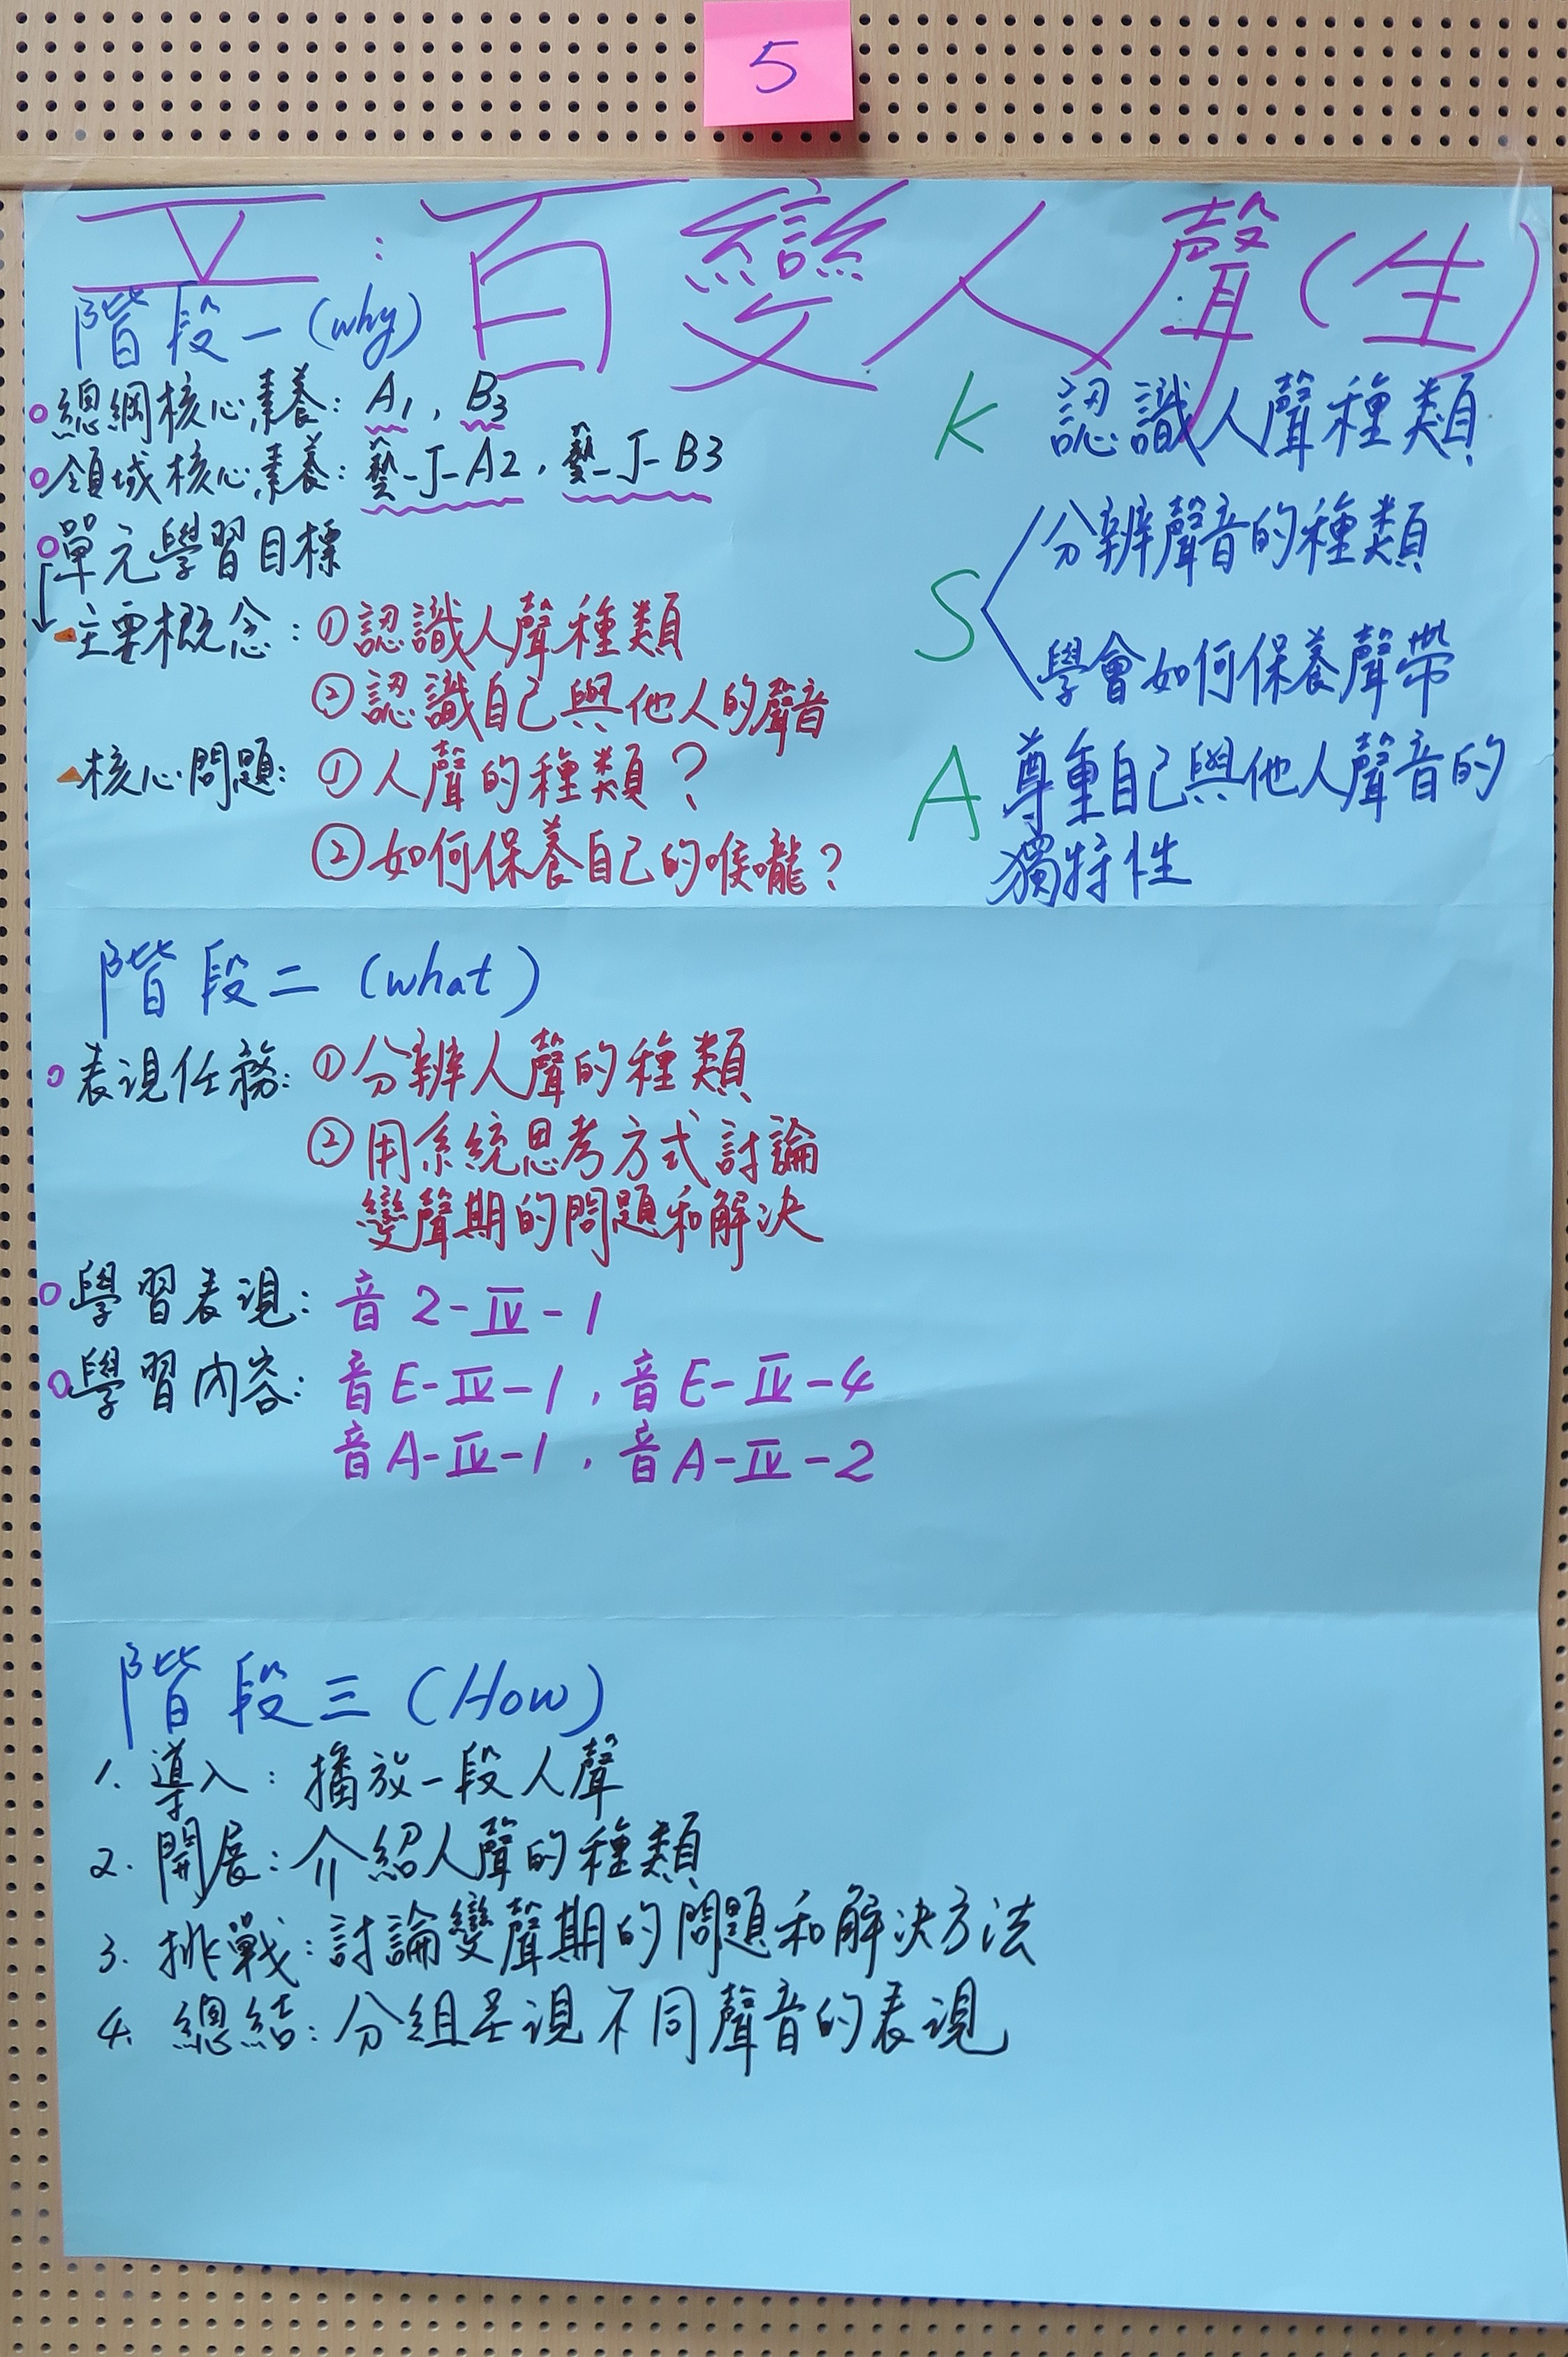 5
Ⅴ:百變人聲(生)
階段一(why)
總綱核心素養: A1, B3
領域核心素養: 藝-J-A2, 藝-J-B3
單元學習目標
主要概念: ①認識人聲種類
②認識自己與他人的聲音
核心問題: ①人聲的種類?
②如何保養自己的喉嚨?
K 認識人聲種類
S 分辨聲音的種類
學會如何保養聲帶
A 尊重自己與他人聲音的
獨特性
階段二 (what)
表現任務: ①分辨人聲的種類
②用系統思考方式討論
變聲期的問題和解決
學習表現: 音 2-Ⅳ-1
學習內容: 音E-Ⅳ-1, 音E-Ⅳ-4
音A-Ⅳ-1, 音A-Ⅳ-2
階段三 (How)
1. 導入: 播放一段人聲
2. 開展: 介紹人聲的種類
3. 挑戰: 討論變聲期的問題和解決方法
4. 總結: 分組呈現不同聲音的表現